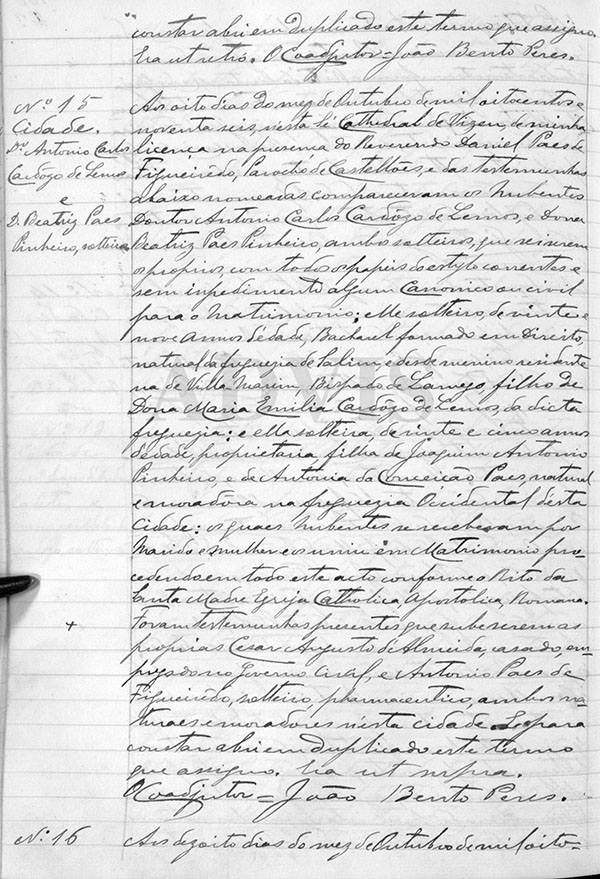 constar abri em duplicado este termo que assigno.
Era ut retro. O Coadjutor = João Bento Peres.
Nº 15
Cidade.
Dr. Antonio Carlos
Cardôzo de Lemos
e
D. Beatriz Paes
Pinheiro, solteiros
Aos oito dias do mez de Outubro de mil oitocentos e
noventa seis, n'esta Sé Cathedral de Vizeu, de minha
licença na presença do Reverendo Daniel Paes de
Figueirêdo, Parocho de Castellões, e das testemunhas
abaixo nomeadas compareceram os Nubentes
Doutor Antonio Carlos Cardôzo de Lemos, e Dona
Beatriz Paes Pinheiro, ambos solteiros, que sei serem
os proprios, com todos os papeis do estylo correntes e
sem impedimento algum Canonico ou civil
para o Matrimonio; elle solteiro, de vinte e
nove annos d'edade, Bacharel formado em Direito,
natural da freguezia de e desde menino residente
na de Villa Marim, Bispado de Lamego, filho de
Dona Maria Emilia Cardôzo de Lemos, da dicta
freguezia: e ella solteira, de vinte e cinco annos
d'edade, proprietaria, filha de Joaquim Antonio
Pinheiro, e de Antonia da Conceição Paes, natural
e moradôra na freguezia Occidental d'esta
Cidade: os quaes Nubentes se receberam por
Marido e mulher e os uniu em Matrimonio pro-
cedendo em todo este acto conforme o Rito da
Santa Madre Egreja Catholica, Apostolica, Romana.
+
Foram testemunhas presentes que sube serem as
proprias Cesar Augusto d'Almeida, casado, em-
pregado no Governo Civil, e Antonio Paes de
Figueirêdo, solteiro, pharmaceutico, ambos na-
turaes e moradores n'esta cidade. E para
constar abri em duplicado este termo
que assigno. Era ut supra.
O Coadjutor = João Bento Peres.
Nº 16
Aos dezoito dias do mez de Outubro de mil oito-